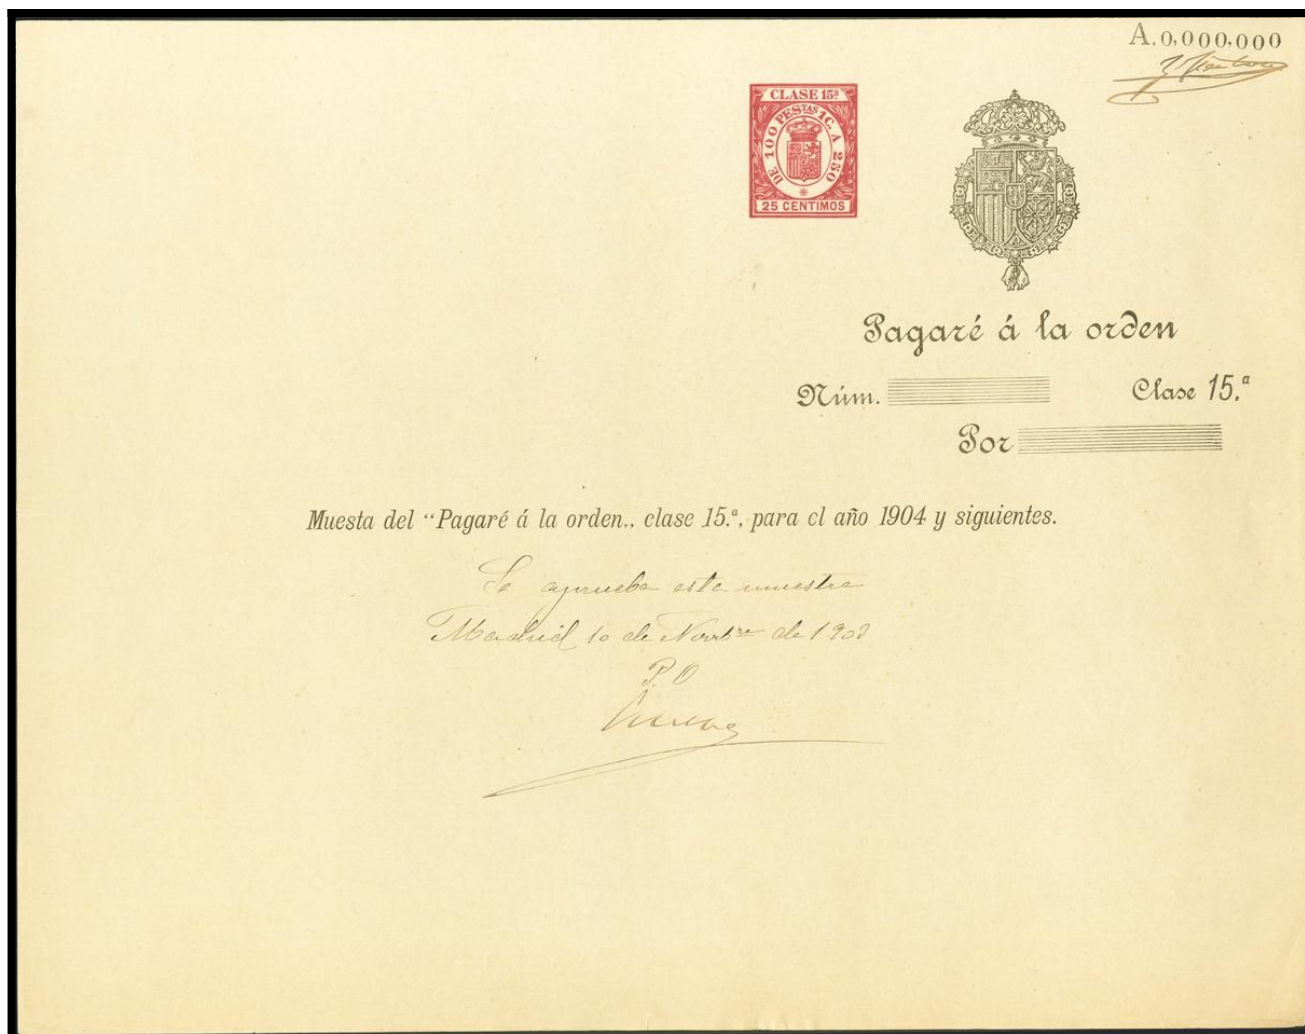 A.0,000,000
CLASE 15ª
DE 100 PESTAS 1C. A 250
25 CENTIMOS
Pagaré á la orden
Núm. Clase 15.ª
Por
Muesta del “Pagaré á la orden„ clase 15.ª, para el año 1904 y siguientes.
Se aprueba esta muestra
Madrid 10 de Novbre de 1903
P.O